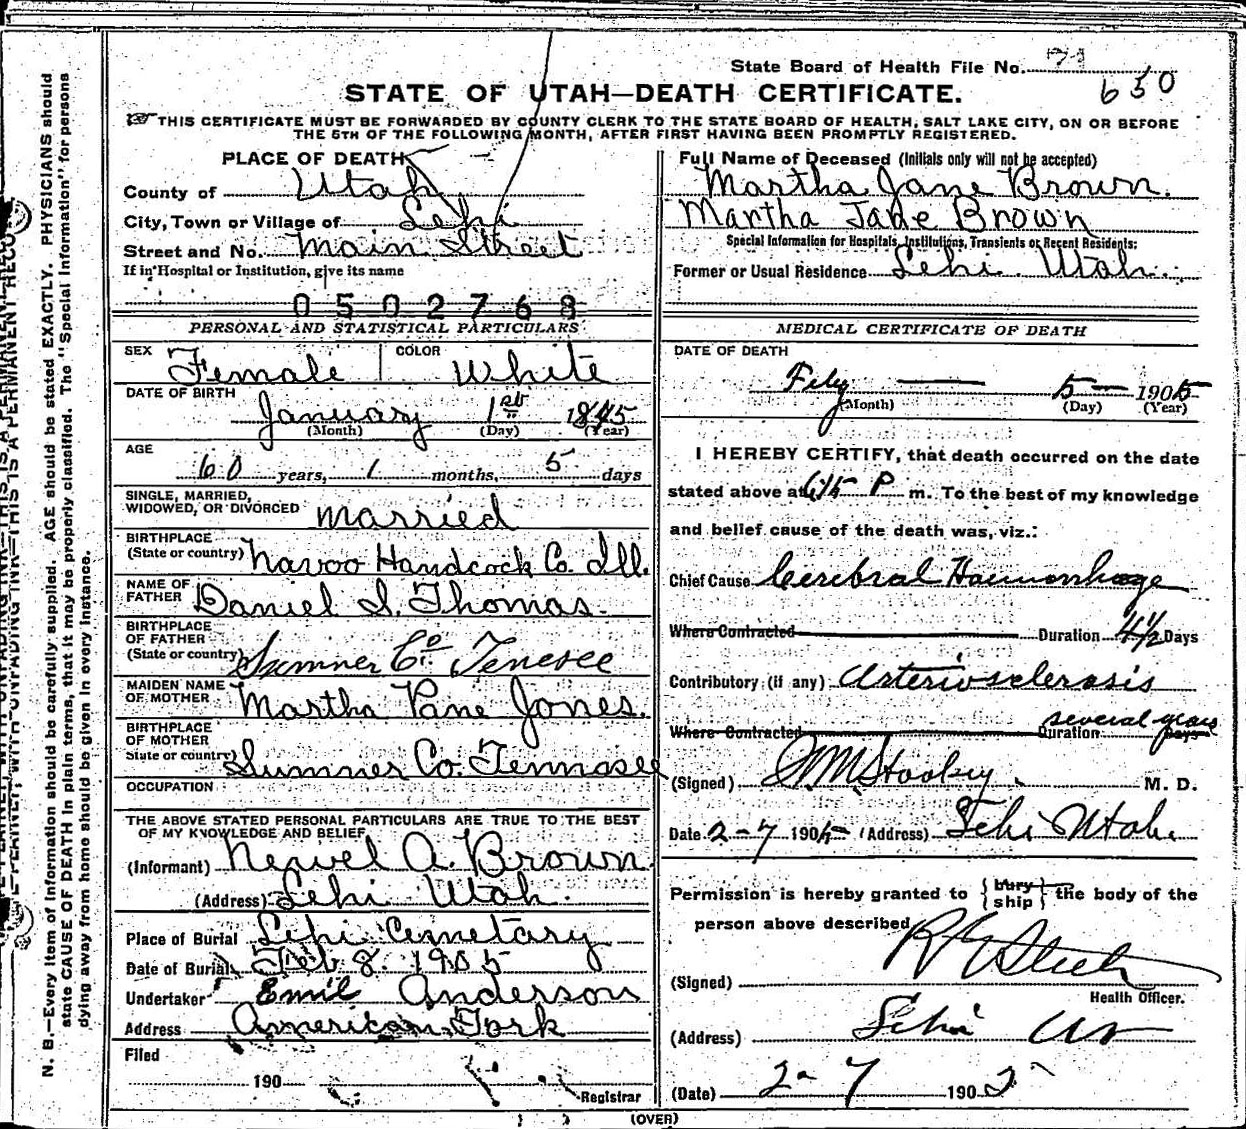 State Board of Health File No.
650
STATE OF UTAH—DEATH CERTIFICATE.
THIS CERTIFICATE MUST BE FORWARDED BY COUNTY CLERK TO THE STATE BOARD OF HEALTH, SALT LAKE CITY, ON OR BEFORE
THE 5TH OF THE FOLLOWING MONTH, AFTER FIRST HAVING BEEN PROMPTLY REGISTERED.
PLACE OF DEATH
County of Utah
City, Town or Village of Lehi
Street and No. Main Street
If in Hospital or Institution, give its name
0502768
PERSONAL AND STATISTICAL PARTICULARS
SEX Female COLOR White
DATE OF BIRTH
January 1st 1845
(Month) (Day) (Year)
AGE
60 years, 1 months, 5 days
SINGLE, MARRIED,
WIDOWED, OR DIVORCED Married
BIRTHPLACE
(State or country) Navoo Handcock Co. Ill.
NAME OF
FATHER Daniel S. Thomas.
BIRTHPLACE
OF FATHER
(State or country) Sumner Co. Tenesee
MAIDEN NAME
OF MOTHER Martha Pane Jones.
BIRTHPLACE
OF MOTHER
State or country) Sumner Co. Tennasee
OCCUPATION
THE ABOVE STATED PERSONAL PARTICULARS ARE TRUE TO THE BEST
OF MY KNOWLEDGE AND BELIEF
(Informant) Newel A. Brown.
(Address) Lehi Utah.
Place of Burial Lehi Cemetary
Date of Burial Feb 8. 1905
Undertaker Emil Anderson
Address American Fork
Filed
190
Registrar
Full Name of Deceased (Initials only will not be accepted)
Martha Jane Brown.
Martha Jane Brown
Special Information for Hospitals, Institutions, Transients or Recent Residents:
Former or Usual Residence Lehi Utah.
MEDICAL CERTIFICATE OF DEATH
DATE OF DEATH
5 1905
(Month) (Day) (Year)
I HEREBY CERTIFY, that death occurred on the date
stated above at 615 P m. To the best of my knowledge
and belief cause of the death was, viz.:
Chief Cause Cerebral Haemorrhage
Where Contracted Duration 4½ Days
Contributory (if any) Arteriosclerosis
several years
Where Contracted Duration Days
(Signed) M. D.
Date 2-7 1905 (Address) Lehi Utah.
Permission is hereby granted to {bury ship} the body of the
person above described
(Signed)
Health Officer.
(Address) Lehi Ut
(Date) 2-7 190
(OVER)
N. B.—Every item of information should be carefully supplied. AGE should be stated EXACTLY. PHYSICIANS should
state CAUSE OF DEATH in plain terms, that it may be properly classified. The "Special Information" for persons
dying away from home should be given in every instance.